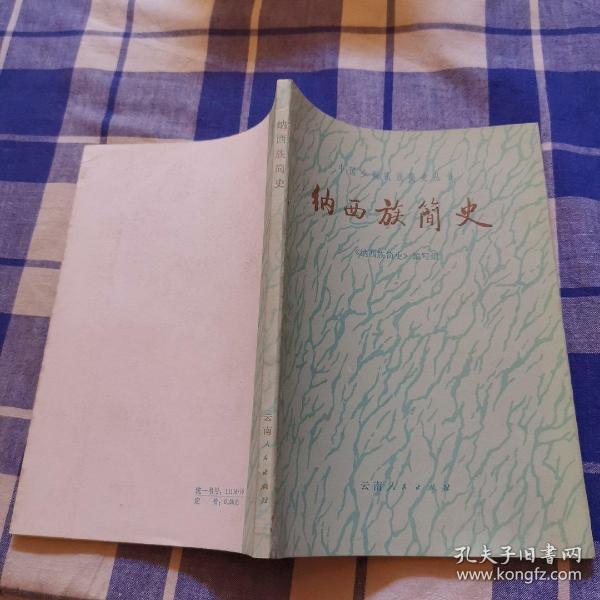 中国少数民族简史丛书
纳西族简史
《纳西族简史》编写组
云南人民出版社
纳西族简史
云南人民出版社
统一书号：11116·
定 价：0.
孔夫子旧书网
www.kongfz.com